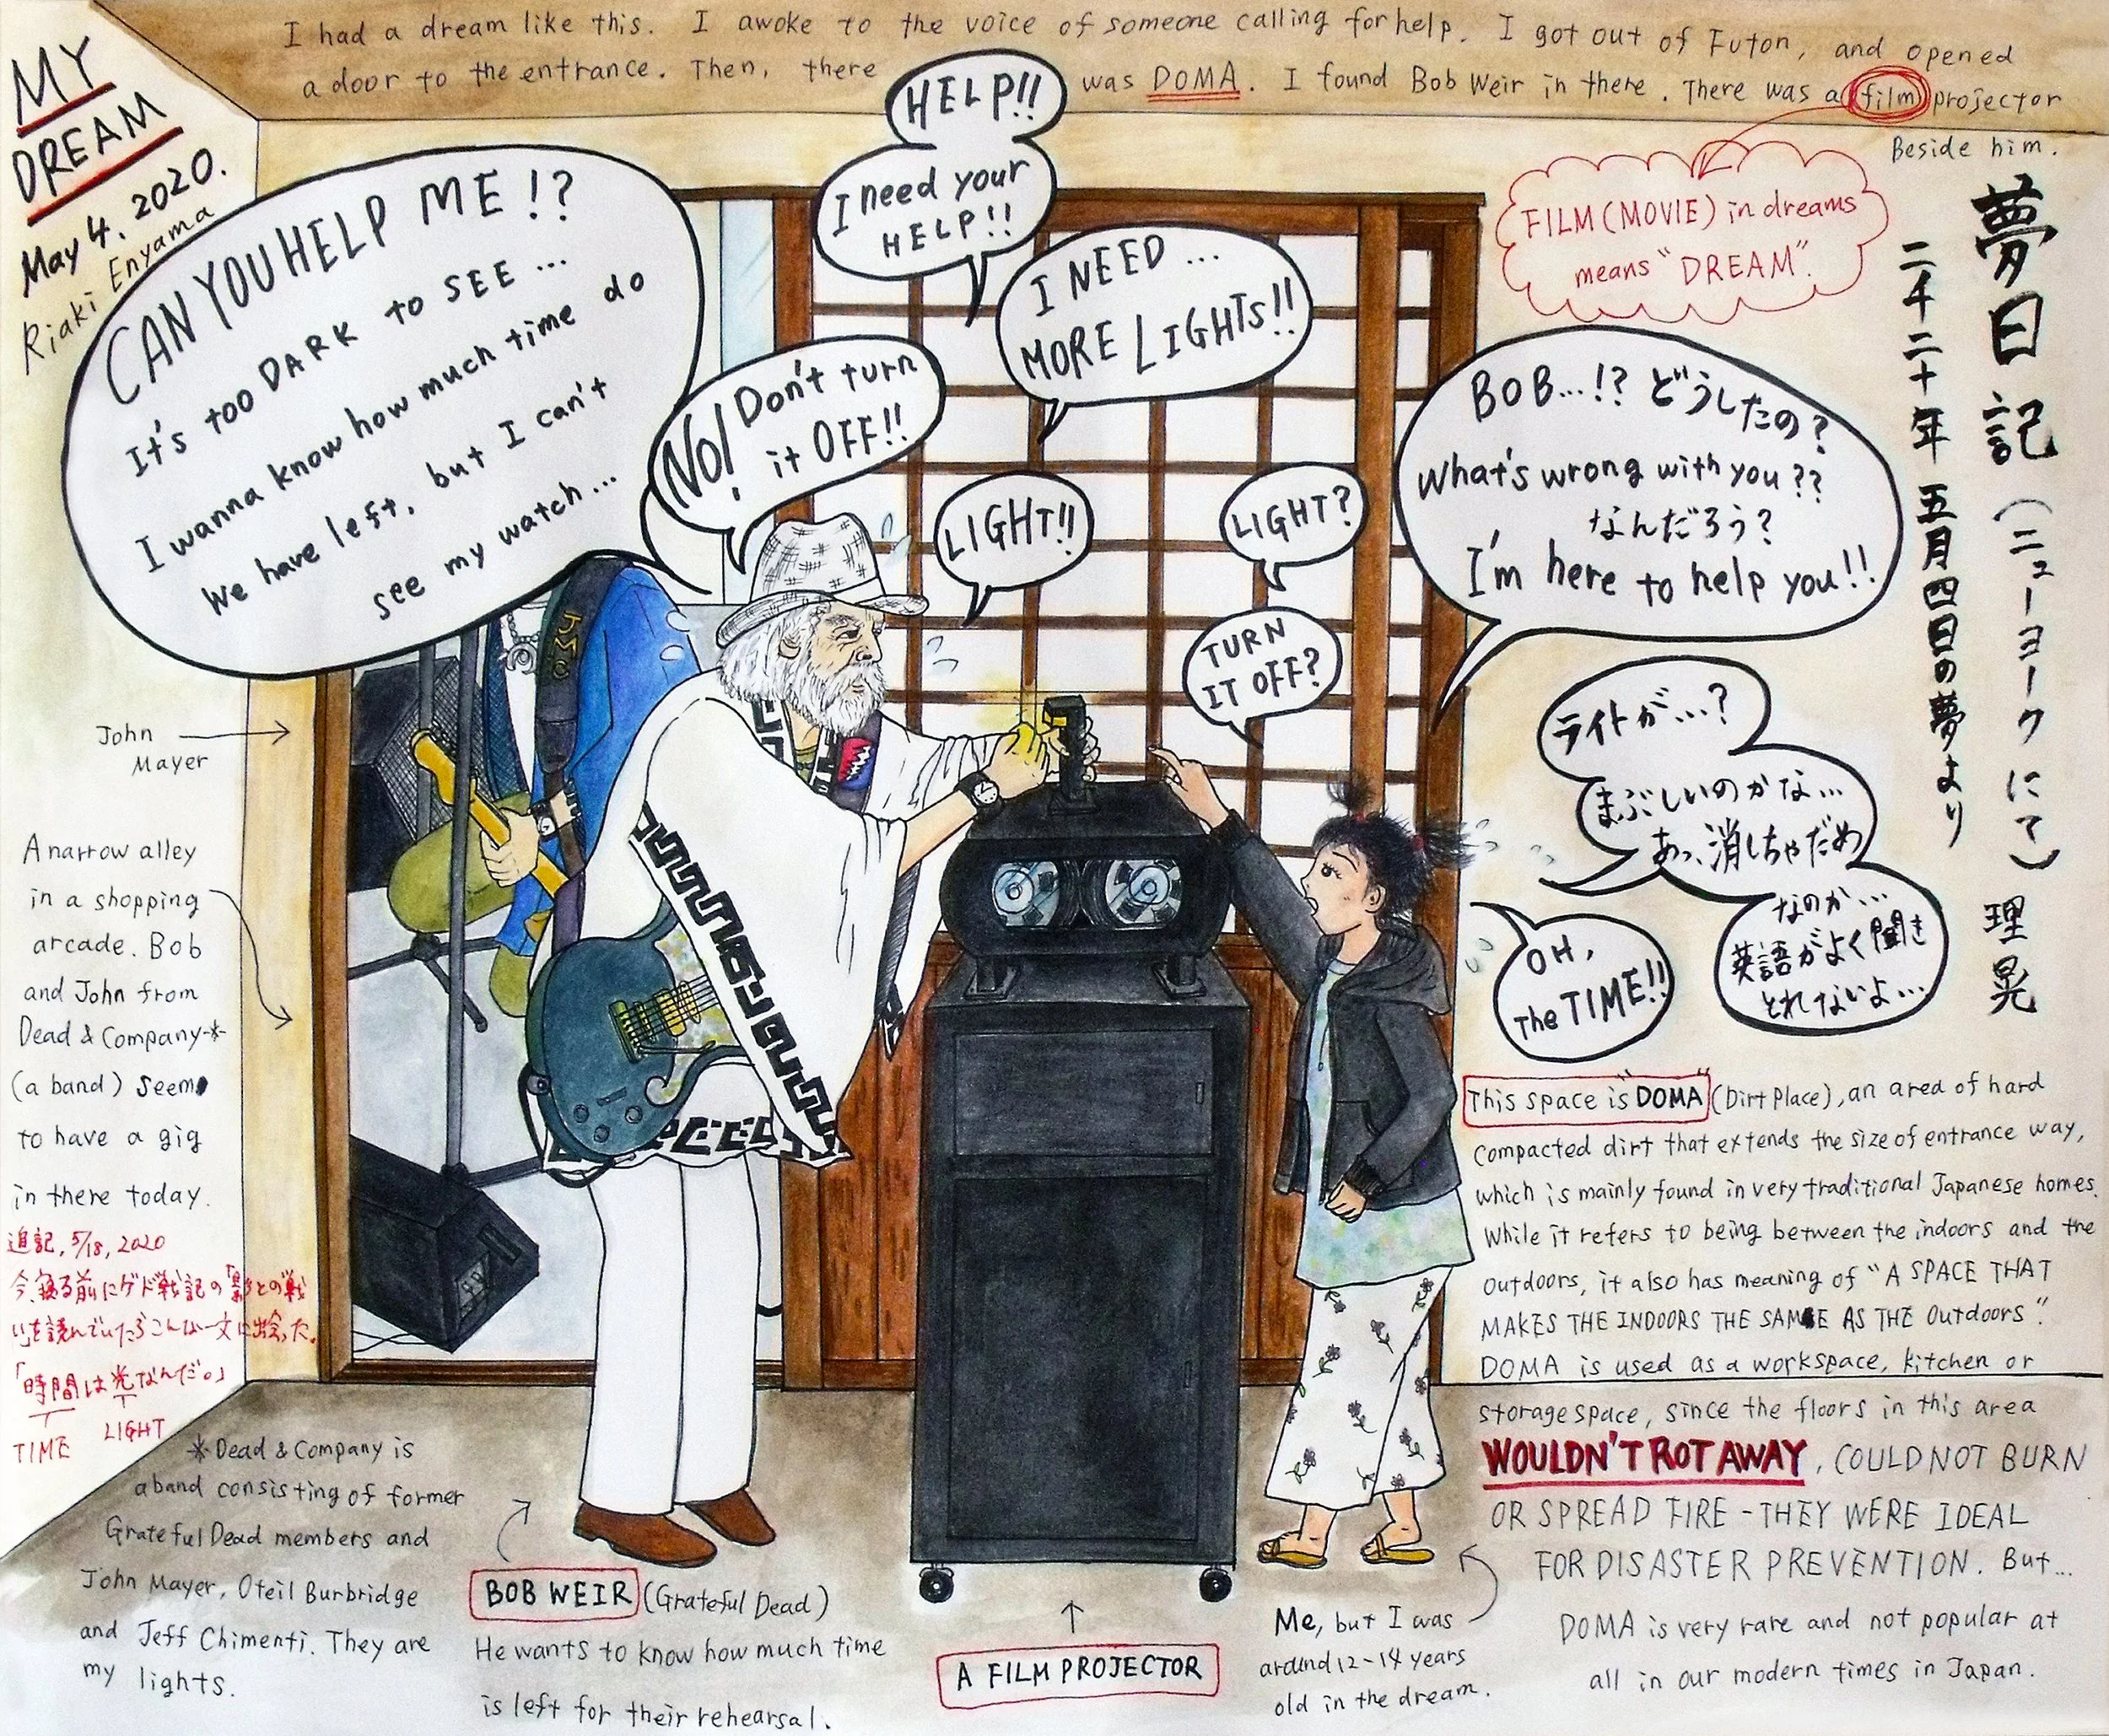 MY
DREAM
May 4. 2020.
Riaki Enyama
I had a dream like this. I awoke to the voice of someone calling for help. I got out of Futon, and opened
a door to the entrance. Then, there was DOMA. I found Bob Weir in there. There was a film projector
Beside him.
FILM (MOVIE) in dreams
means "DREAM".
夢日記(ニューヨークにて) 理晃
二千二十年 五月四日の夢より
HELP!!
I need your
HELP!!
I NEED...
MORE LIGHTS!!
CAN YOU HELP ME!?
It's too DARK to SEE...
I wanna know how much time do
we have left, but I can't
see my watch...
NO! Don't turn
it OFF!!
LIGHT!!
LIGHT?
TURN
IT OFF?
BOB...!? どうしたの?
What's wrong with you??
なんだろう?
I'm here to help you!!
ライトが...?
まぶしいのかな...
あっ、消しちゃだめ
なのか...
英語がよく聞き
とれないよ...
OH,
The TIME!!
JMC
John
Mayer
A narrow alley
in a shopping
arcade. Bob
and John from
Dead & Company*
(a band) seem
to have a gig
in there today.
追記, 5/18, 2020
今、寝る前にゲド戦記の「影との戦
い」を読んでいたらこんな一文に出会った。
「時間は光なんだ。」
TIME LIGHT
*Dead & Company is
a band consisting of former
Grateful Dead members and
John Mayer, Oteil Burbridge
and Jeff Chimenti. They are
my lights.
BOB WEIR (Grateful Dead)
He wants to know how much time
is left for their rehearsal.
A FILM PROJECTOR
Me, but I was
around 12-14 years
old in the dream.
This space is "DOMA" (Dirt Place), an area of hard
compacted dirt that extends the size of entrance way,
which is mainly found in very traditional Japanese homes.
While it refers to being between the indoors and the
outdoors, it also has meaning of "A SPACE THAT
MAKES THE INDOORS THE SAME AS THE Outdoors".
DOMA is used as a workspace, kitchen or
storage space, since the floors in this area
WOULDN'T ROT AWAY, COULD NOT BURN
OR SPREAD FIRE - THEY WERE IDEAL
FOR DISASTER PREVENTION. But...
DOMA is very rare and not popular at
all in our modern times in Japan.